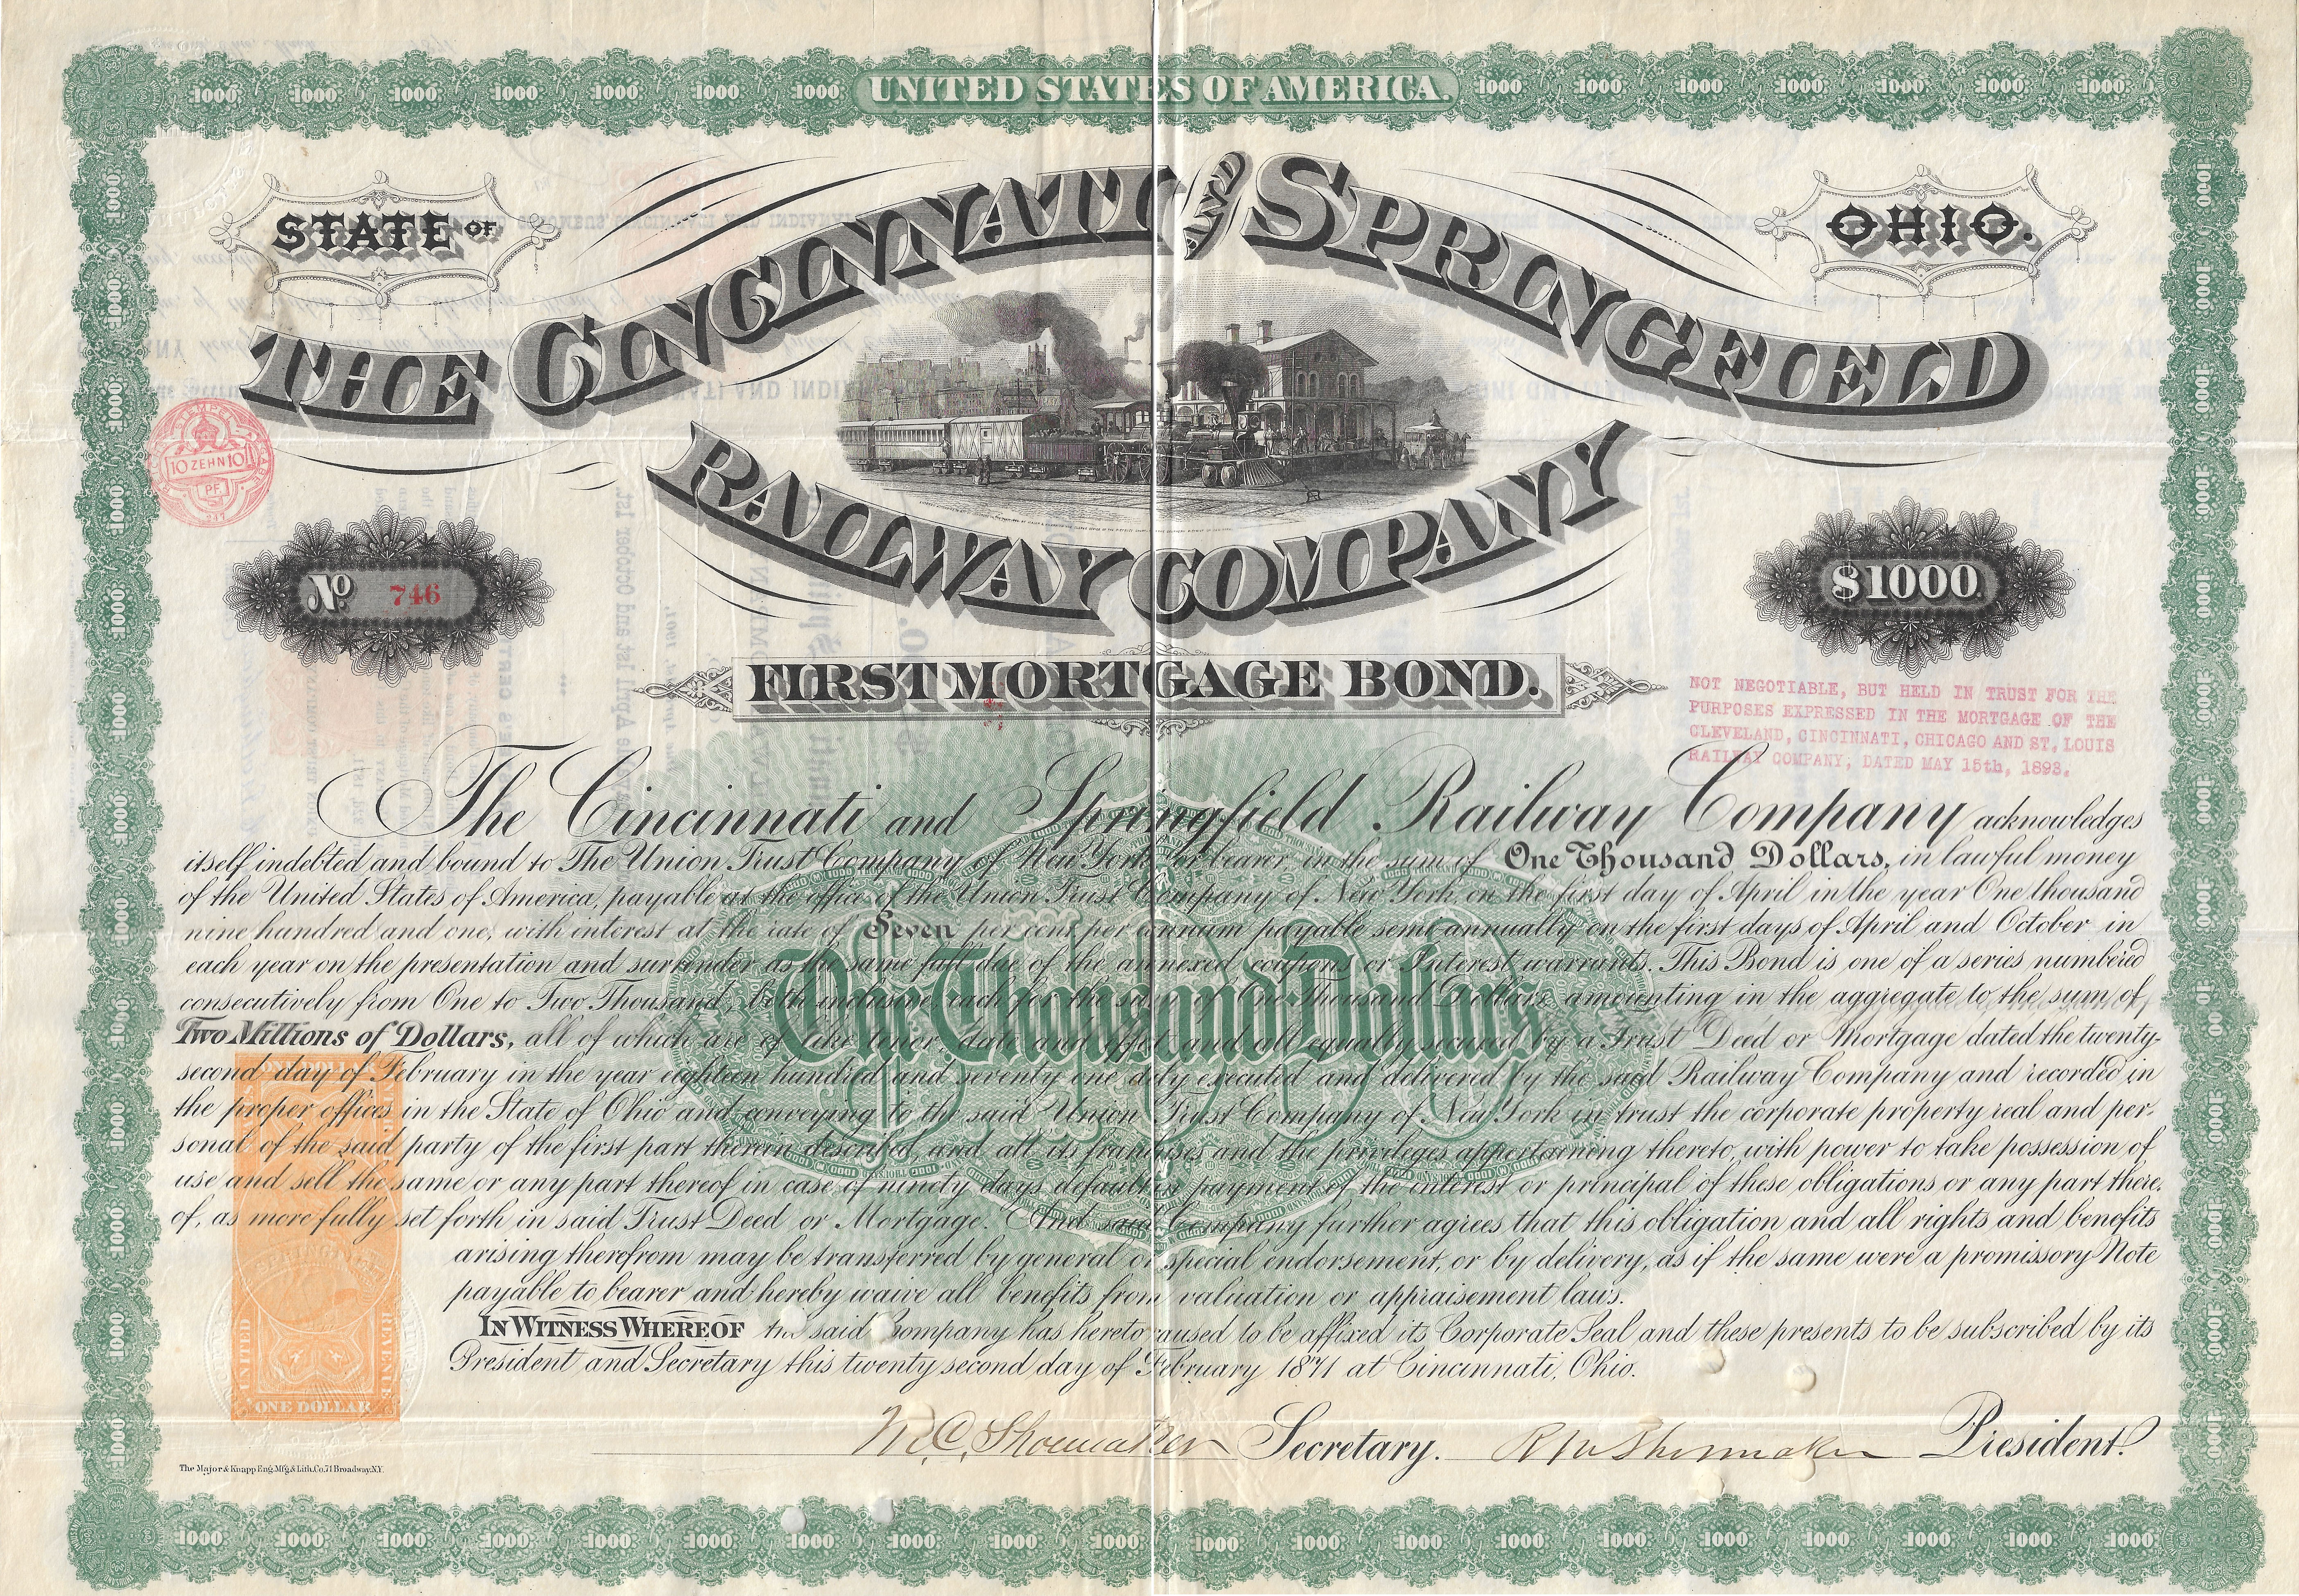 UNITED STATES OF AMERICA.
STATE OF
OHIO.
THE CINCINNATI AND SPRINGFIELD
RAILWAY COMPANY
10 ZEHN 10
PF.
No. 746
$1000.
FIRST MORTGAGE BOND.
NOT NEGOTIABLE, BUT HELD IN TRUST FOR THE
PURPOSES EXPRESSED IN THE MORTGAGE OF THE
CLEVELAND, CINCINNATI, CHICAGO AND ST. LOUIS
RAILWAY COMPANY; DATED MAY 15th, 1893.
The Cincinnati and Springfield Railway Company acknowledges
itself indebted and bound to The Union Trust Company of New York or bearer, in the sum of One Thousand Dollars, in lawful money
of the United States of America, payable at the office of the Union Trust Company of New York, on the first day of April in the year One thousand
nine hundred and one, with interest at the rate of Seven per cent per annum payable semi annually on the first days of April and October in
each year on the presentation and surrender as the same fall due of the annexed coupons or Interest warrants. This Bond is one of a series numbered
consecutively from One to Two Thousand, both inclusive each for the sum of One Thousand Dollars amounting in the aggregate to the sum of
Two Millions of Dollars, all of which are of like tenor, date and effect and all equally secured by a Trust Deed or Mortgage dated the twenty-
second day of February in the year eighteen hundred and seventy one duly executed and delivered by the said Railway Company and recorded in
the proper offices in the State of Ohio and conveying to the said Union Trust Company of New York in trust the corporate property real and per-
sonal of the said party of the first part therein described, and all its franchises and the privileges appertaining thereto, with power to take possession of
use and sell the same or any part thereof in case of ninety days default in payment of the interest or principal of these obligations or any part there-
of, as more fully set forth in said Trust Deed or Mortgage. And said Company further agrees that this obligation and all rights and benefits
arising therefrom may be transferred by general or special endorsement, or by delivery, as if the same were a promissory Note
payable to bearer and hereby waive all benefits from valuation or appraisement laws.
One Thousand Dollars
IN WITNESS WHEREOF the said Company has hereto caused to be affixed its Corporate Seal and these presents to be subscribed by its
President and Secretary this twenty second day of February 1871 at Cincinnati, Ohio.
ONE DOLLAR
SPRINGFIELD
UNITED
REVENUE
ONE DOLLAR
M. C. Shoemaker Secretary. R M Shoemaker President.
The Major & Knapp Eng. Mfg. & Lith. Co. 71 Broadway N.Y.